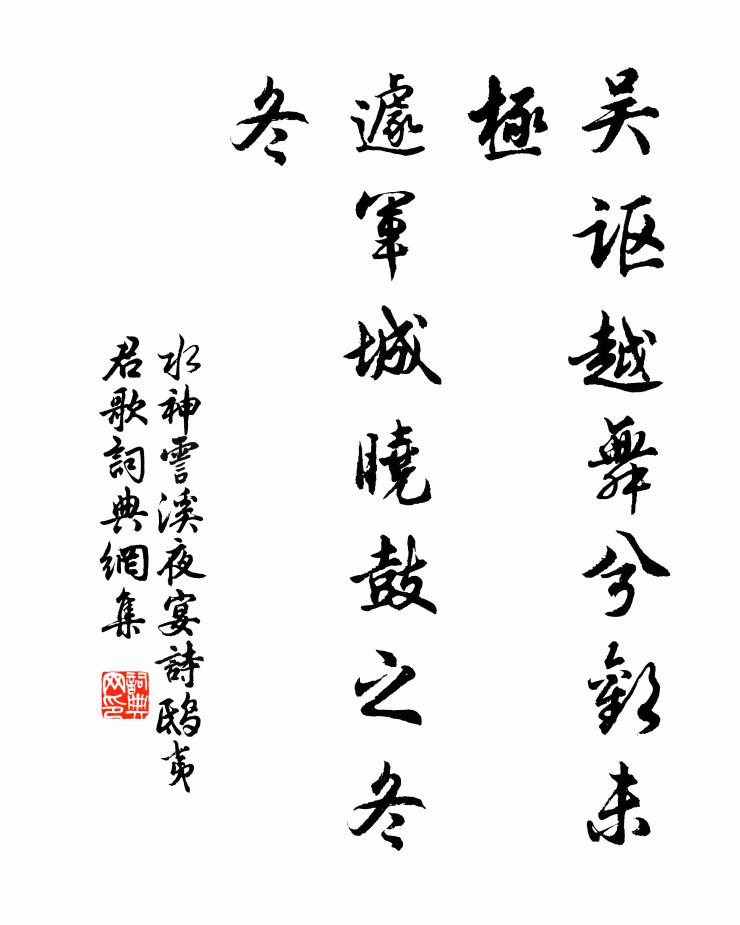 吴讴越舞兮歡未
極
遽軍城曉鼓之冬
冬
水神霅溪夜宴詩鴟夷
君歌詞典網集
詞典
网印